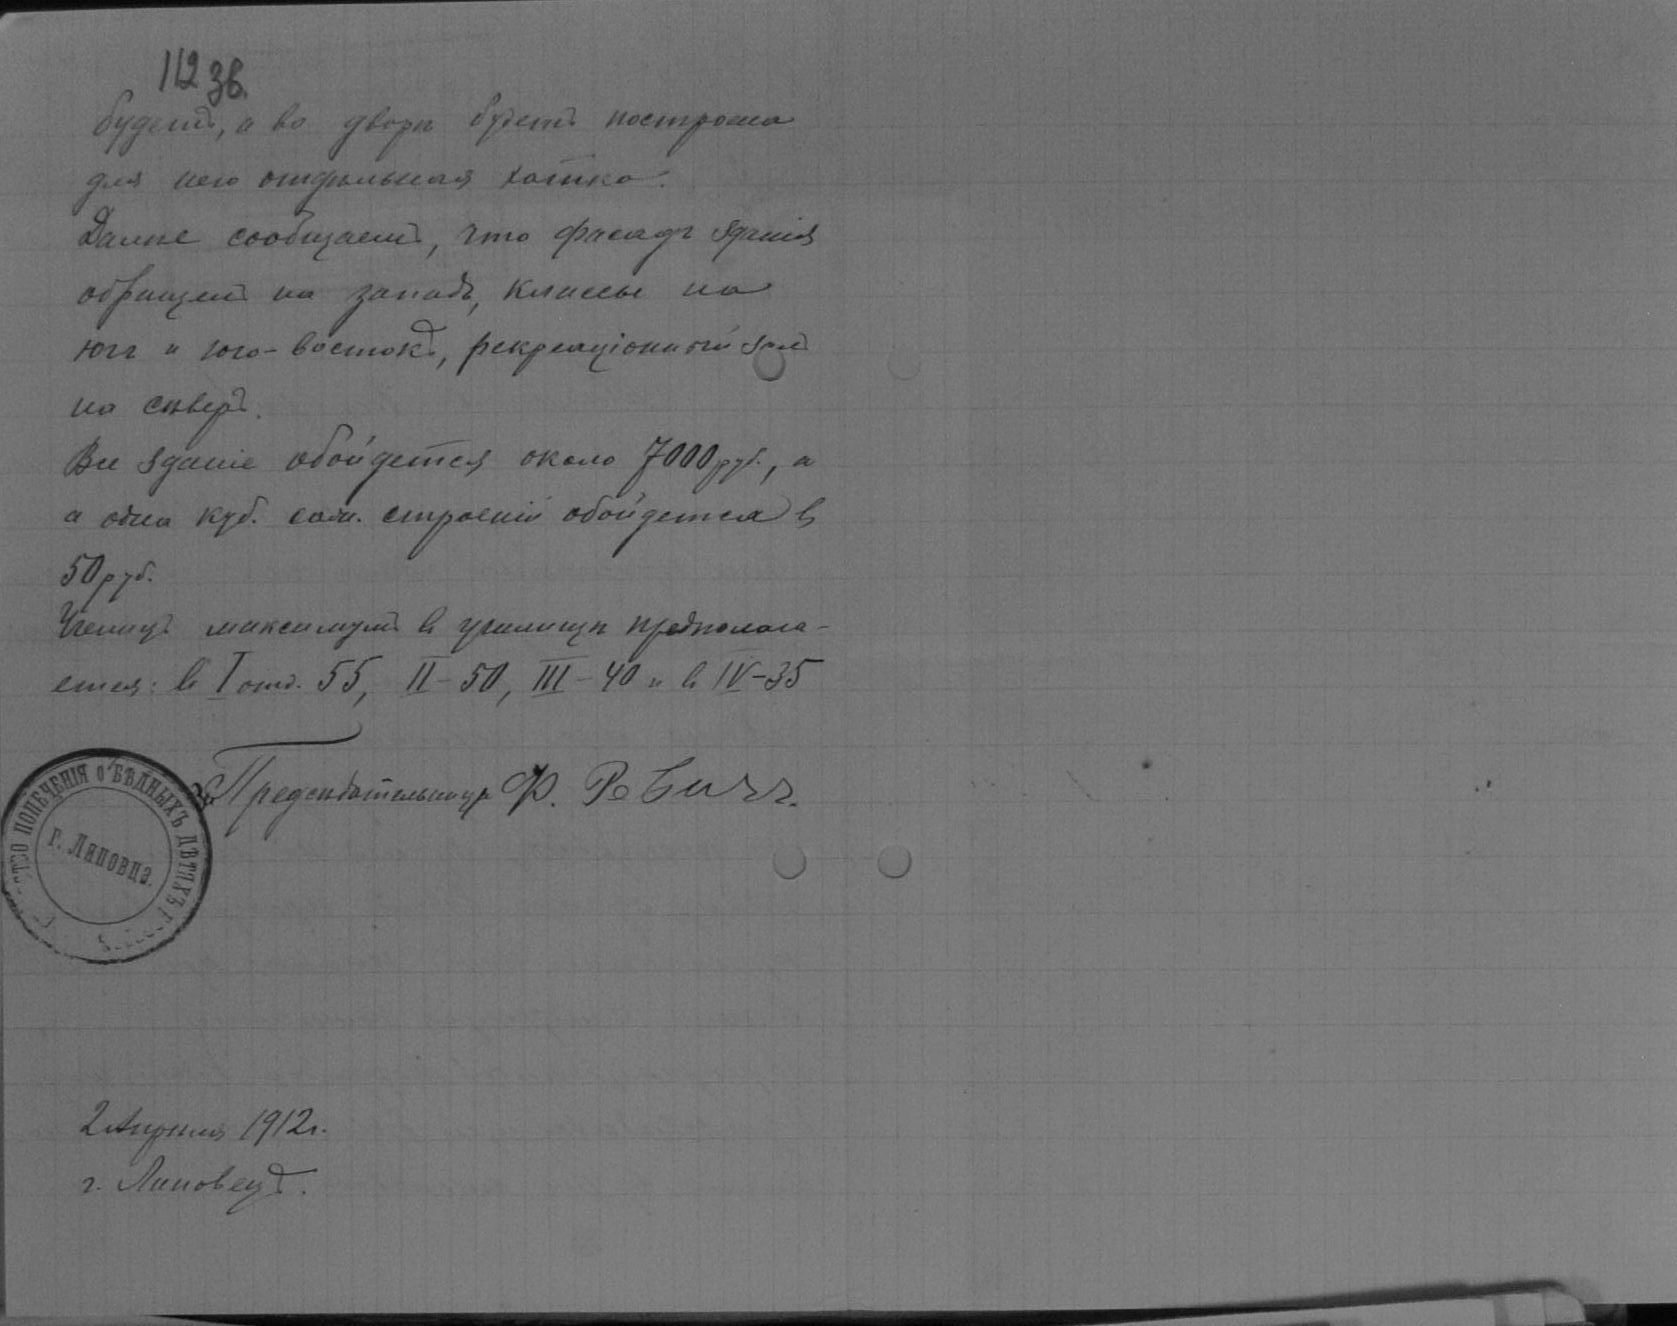 112 зв.
будетъ, а во дворѣ будетъ построена
для него отдѣльная хатка.
Далѣе сообщаемъ, что фасадъ зданія
обращенъ на западъ, классы на
югъ и юго-востокъ, рекреаціонный залъ
на сѣверъ.
Все зданіе обойдется около 7000 руб., а
а одна куб. саж. строеній обойдется въ
50 руб.
Ученицъ максимумъ въ училищѣ предполага-
ется: въ I отд. 55, II - 50, III - 40 и въ IV - 35
Предсѣдательница Ф. Ревичъ.
ПОПЕЧЕНІЯ О БѢДНЫХЪ ДѢТЯХЪ Г.
Г. Липовцѣ.
2 Апрѣля 1912 г.
г. Липовецъ.